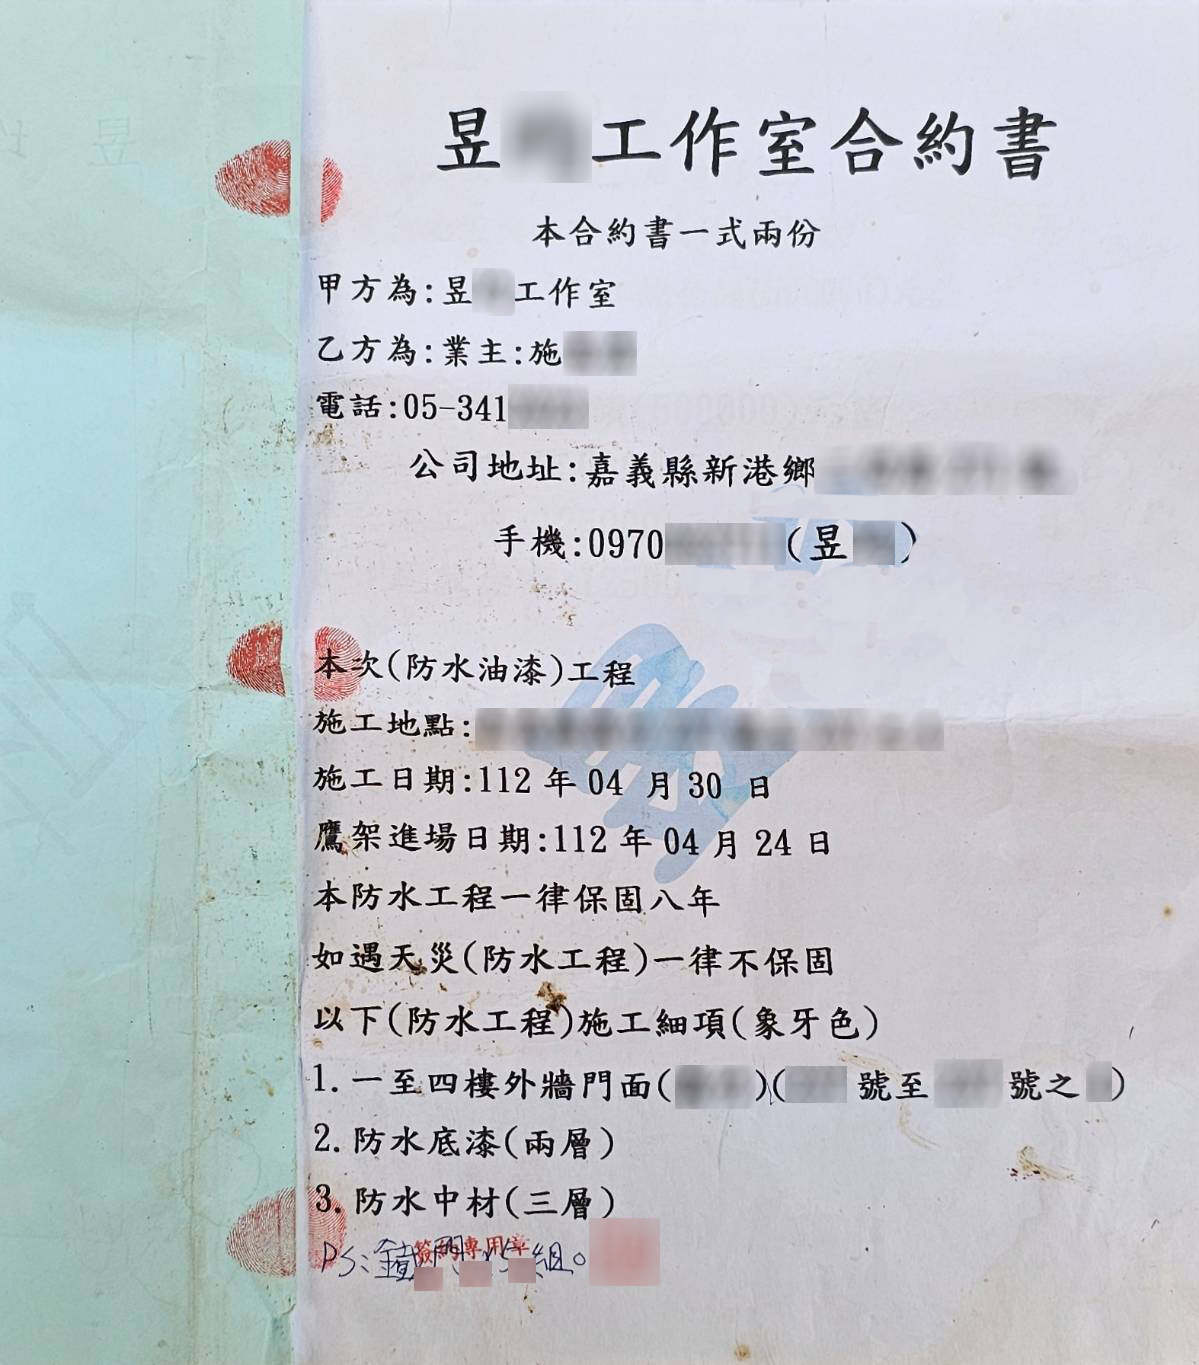 昱 工作室合約書
本合約書一式兩份
甲方為:昱 工作室
乙方為:業主:施
電話:05-341
公司地址:嘉義縣新港鄉
手機:0970 (昱 )
本次(防水油漆)工程
施工地點:
施工日期:112 年 04 月 30 日
鷹架進場日期:112 年 04 月 24 日
本防水工程一律保固八年
如遇天災(防水工程)一律不保固
以下(防水工程)施工細項(象牙色)
1. 一至四樓外牆門面( )( 號至 號之 )
2. 防水底漆(兩層)
3. 防水中材(三層)
簽約專用章
PS:鐵門 x5組。